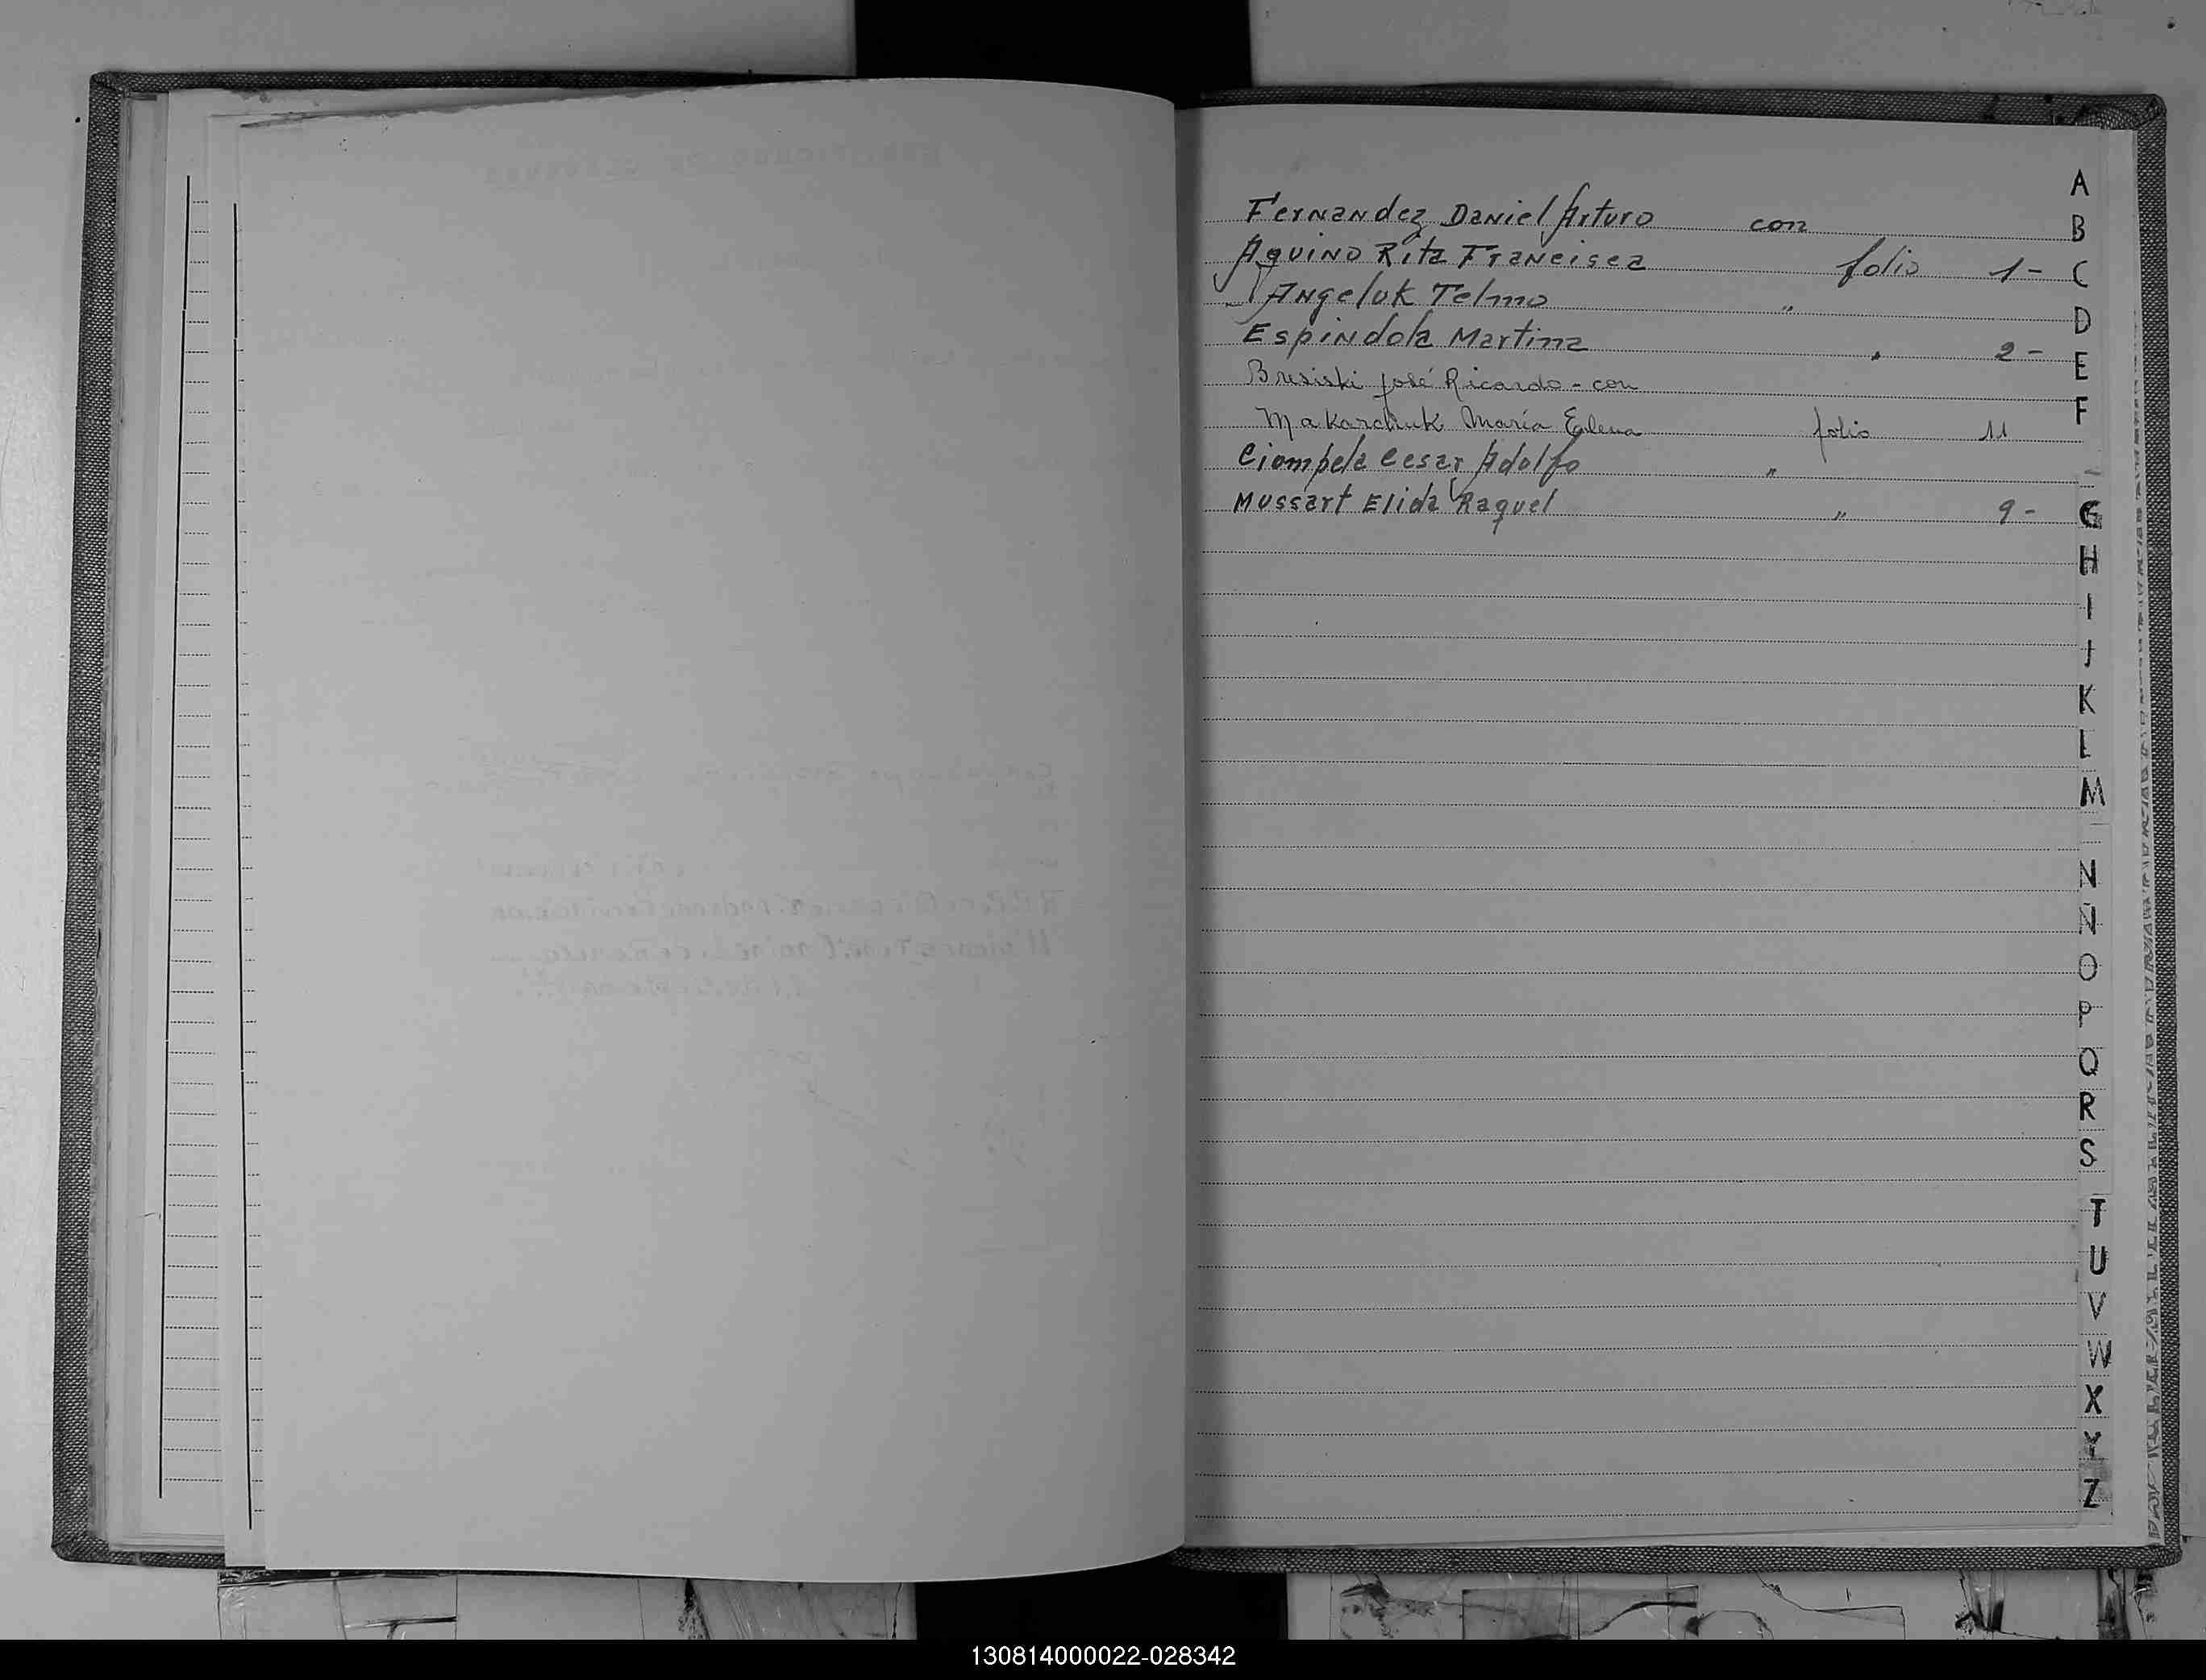 Fernandez Daniel Arturo con
Aquino Rita Francisca folio 1-
Angeluk Telmo "
Espindola Martina " 2-
Bresiski José Ricardo - con
Makarchuk María Elena folio 11
Ciompela Cesar Adolfo "
Mussart Elida Raquel " 9-
A
B
C
D
E
F
G
H
I
J
K
L
M
N
Ñ
O
P
Q
R
S
T
U
V
W
X
Y
Z
130814000022-028342